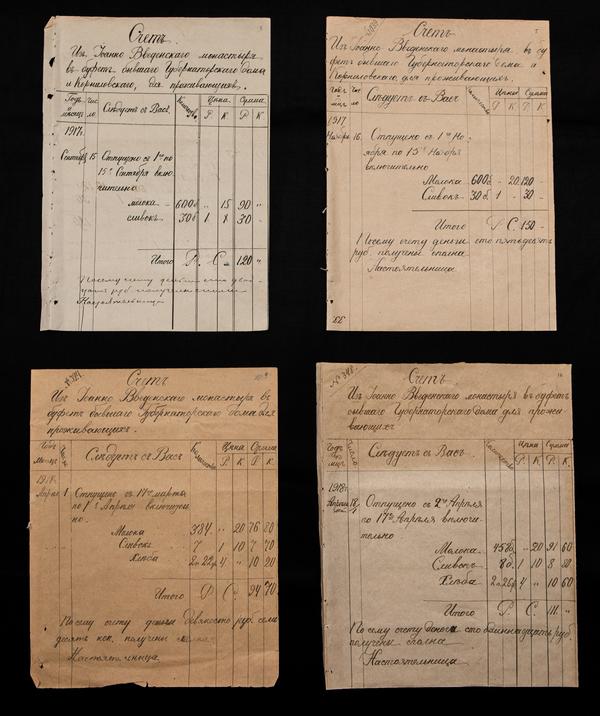 Счетъ.
Изъ Іоанно Введенскаго монастыря
въ буфетъ бывшаго Губернаторскаго дома
и Корниловскаго, для проживающихъ.
Годъ и месяцъ Число Слѣдуетъ съ Васъ Количество Цѣна Сумма
Р. К. Р. К.
1917г.
Сентябр 15 Отпущено съ 1го по
15е Сентября вклю-
чительно
молока 600б „ 15 90 „
сливокъ 30б 1 „ 30 „
Итого Р. С. 120 „
По сему счету деньги сто два-
дцать руб. получены сполна
Настоятельница
Счетъ
Изъ Іоанно Введенскаго монастыря въ бу-
фетъ бывшаго Губернаторскаго дома и
Корниловскаго, для проживающихъ.
Слѣдуетъ съ Васъ Количество Цѣна Сумма
Р. К. Р. К.
1917
Ноябрь 16. Отпущено съ 1го Но-
ября по 15е Ноября
включительно
Молока 600б - 20 120 -
Сливокъ 30б 1 - 30 -
Итого Р С. 150 -
По сему счету деньги сто пятьдесятъ
руб. получены сполна
Настоятельница
Счетъ
Изъ Іоанно Введенскаго монастыря въ
буфетъ бывшаго Губернаторскаго дома для
проживающихъ.
Годъ Месяц Число Слѣдуетъ съ Васъ Количество Цѣна Сумма
Р. К. Р. К.
Апрѣль 1 Отпущено съ 17го марта
по 1е Апрѣля включитель-
но.
Молока 384 „ 20 76 80
Сливокъ 7 1 10 7 70
Хлѣба 4 „ 10 20
Итого Р. С. 94 70
По сему счету деньги девяносто руб. семь
десятъ коп. получены сполна.
Настоятельница
№ 348.
Счетъ
Изъ Іоанно Введенскаго монастыря въ буфетъ
бывшаго Губернаторскаго дома для прожи-
вающихъ
Число Слѣдуетъ съ Васъ. Количество Цѣна Сумма
Р. К. Р. К.
1918г.
Апрѣля 18 Отпущено съ 2го Апрѣля
по 17е Апрѣля включи-
тельно
Молока 458б „ 20 91 60
Сливокъ 8б 1 10 8 80
Хлѣба 4 „ 10 60
Итого Р. С. 111. „
По сему счету деньги сто одиннадцать руб.
получены сполна
Настоятельница